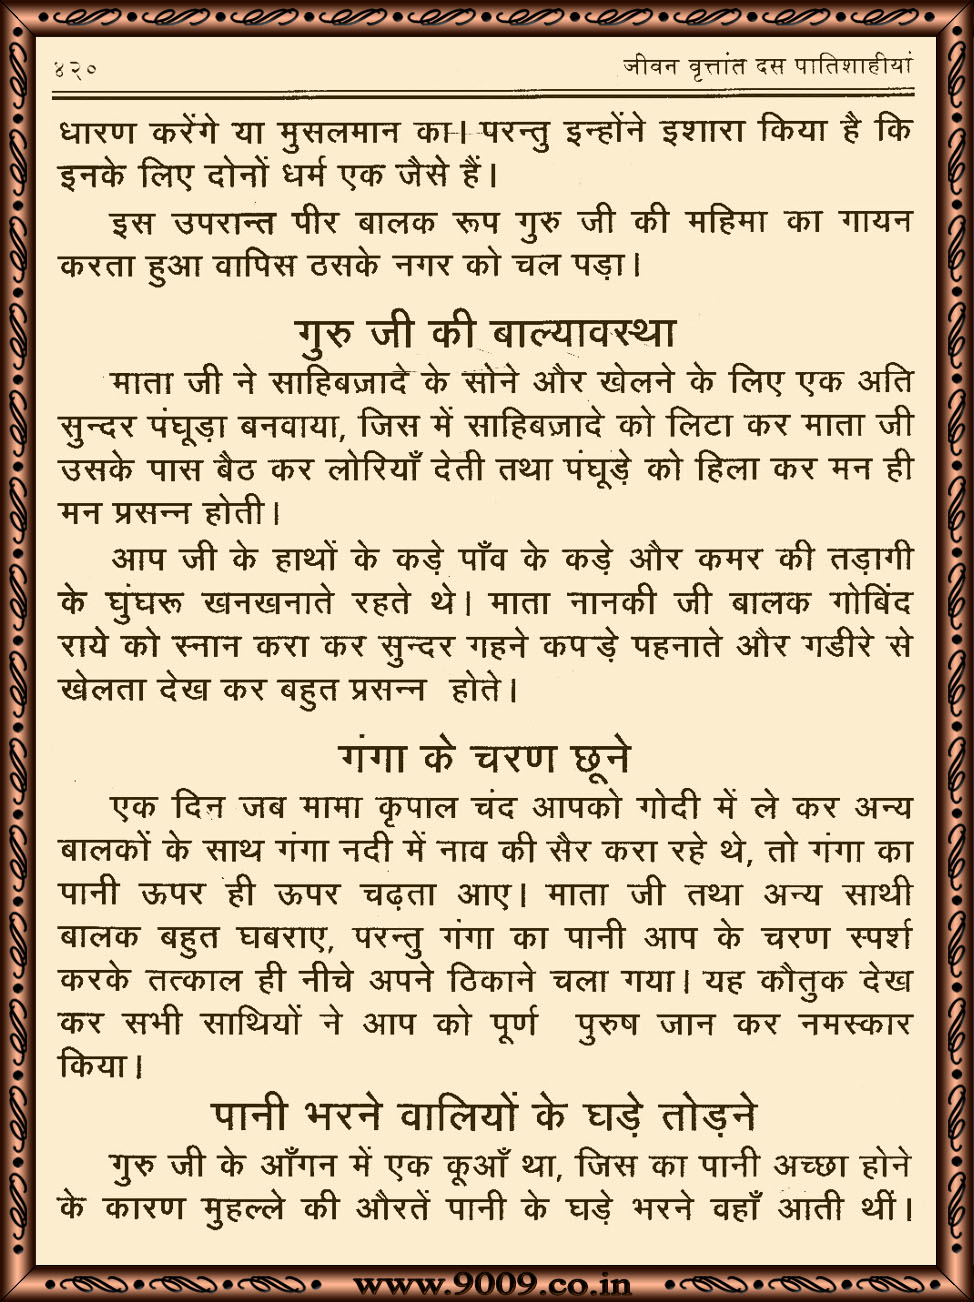 ४२०
जीवन वृत्तांत दस पातिशाहीयां
धारण करेंगे या मुसलमान का। परन्तु इन्होंने इशारा किया है कि
इनके लिए दोनों धर्म एक जैसे हैं।
इस उपरान्त पीर बालक रूप गुरु जी की महिमा का गायन
करता हुआ वापिस ठसके नगर को चल पड़ा।
गुरु जी की बाल्यावस्था
माता जी ने साहिबज़ादे के सोने और खेलने के लिए एक अति
सुन्दर पंघूड़ा बनवाया, जिस में साहिबज़ादे को लिटा कर माता जी
उसके पास बैठ कर लोरियाँ देती तथा पंघूड़े को हिला कर मन ही
मन प्रसन्न होती।
आप जी के हाथों के कड़े पाँव के कड़े और कमर की तड़ागी
के घुंघरू खनखनाते रहते थे। माता नानकी जी बालक गोबिंद
राये को स्नान करा कर सुन्दर गहने कपड़े पहनाते और गडीरे से
खेलता देख कर बहुत प्रसन्न होते।
गंगा के चरण छूने
एक दिन जब मामा कृपाल चंद आपको गोदी में ले कर अन्य
बालकों के साथ गंगा नदी में नाव की सैर करा रहे थे, तो गंगा का
पानी ऊपर ही ऊपर चढ़ता आए। माता जी तथा अन्य साथी
बालक बहुत घबराए, परन्तु गंगा का पानी आप के चरण स्पर्श
करके तत्काल ही नीचे अपने ठिकाने चला गया। यह कौतुक देख
कर सभी साथियों ने आप को पूर्ण पुरुष जान कर नमस्कार
किया।
पानी भरने वालियों के घड़े तोड़ने
गुरु जी के आँगन में एक कूआँ था, जिस का पानी अच्छा होने
के कारण मुहल्ले की औरतें पानी के घड़े भरने वहाँ आती थीं।
www.9009.co.in